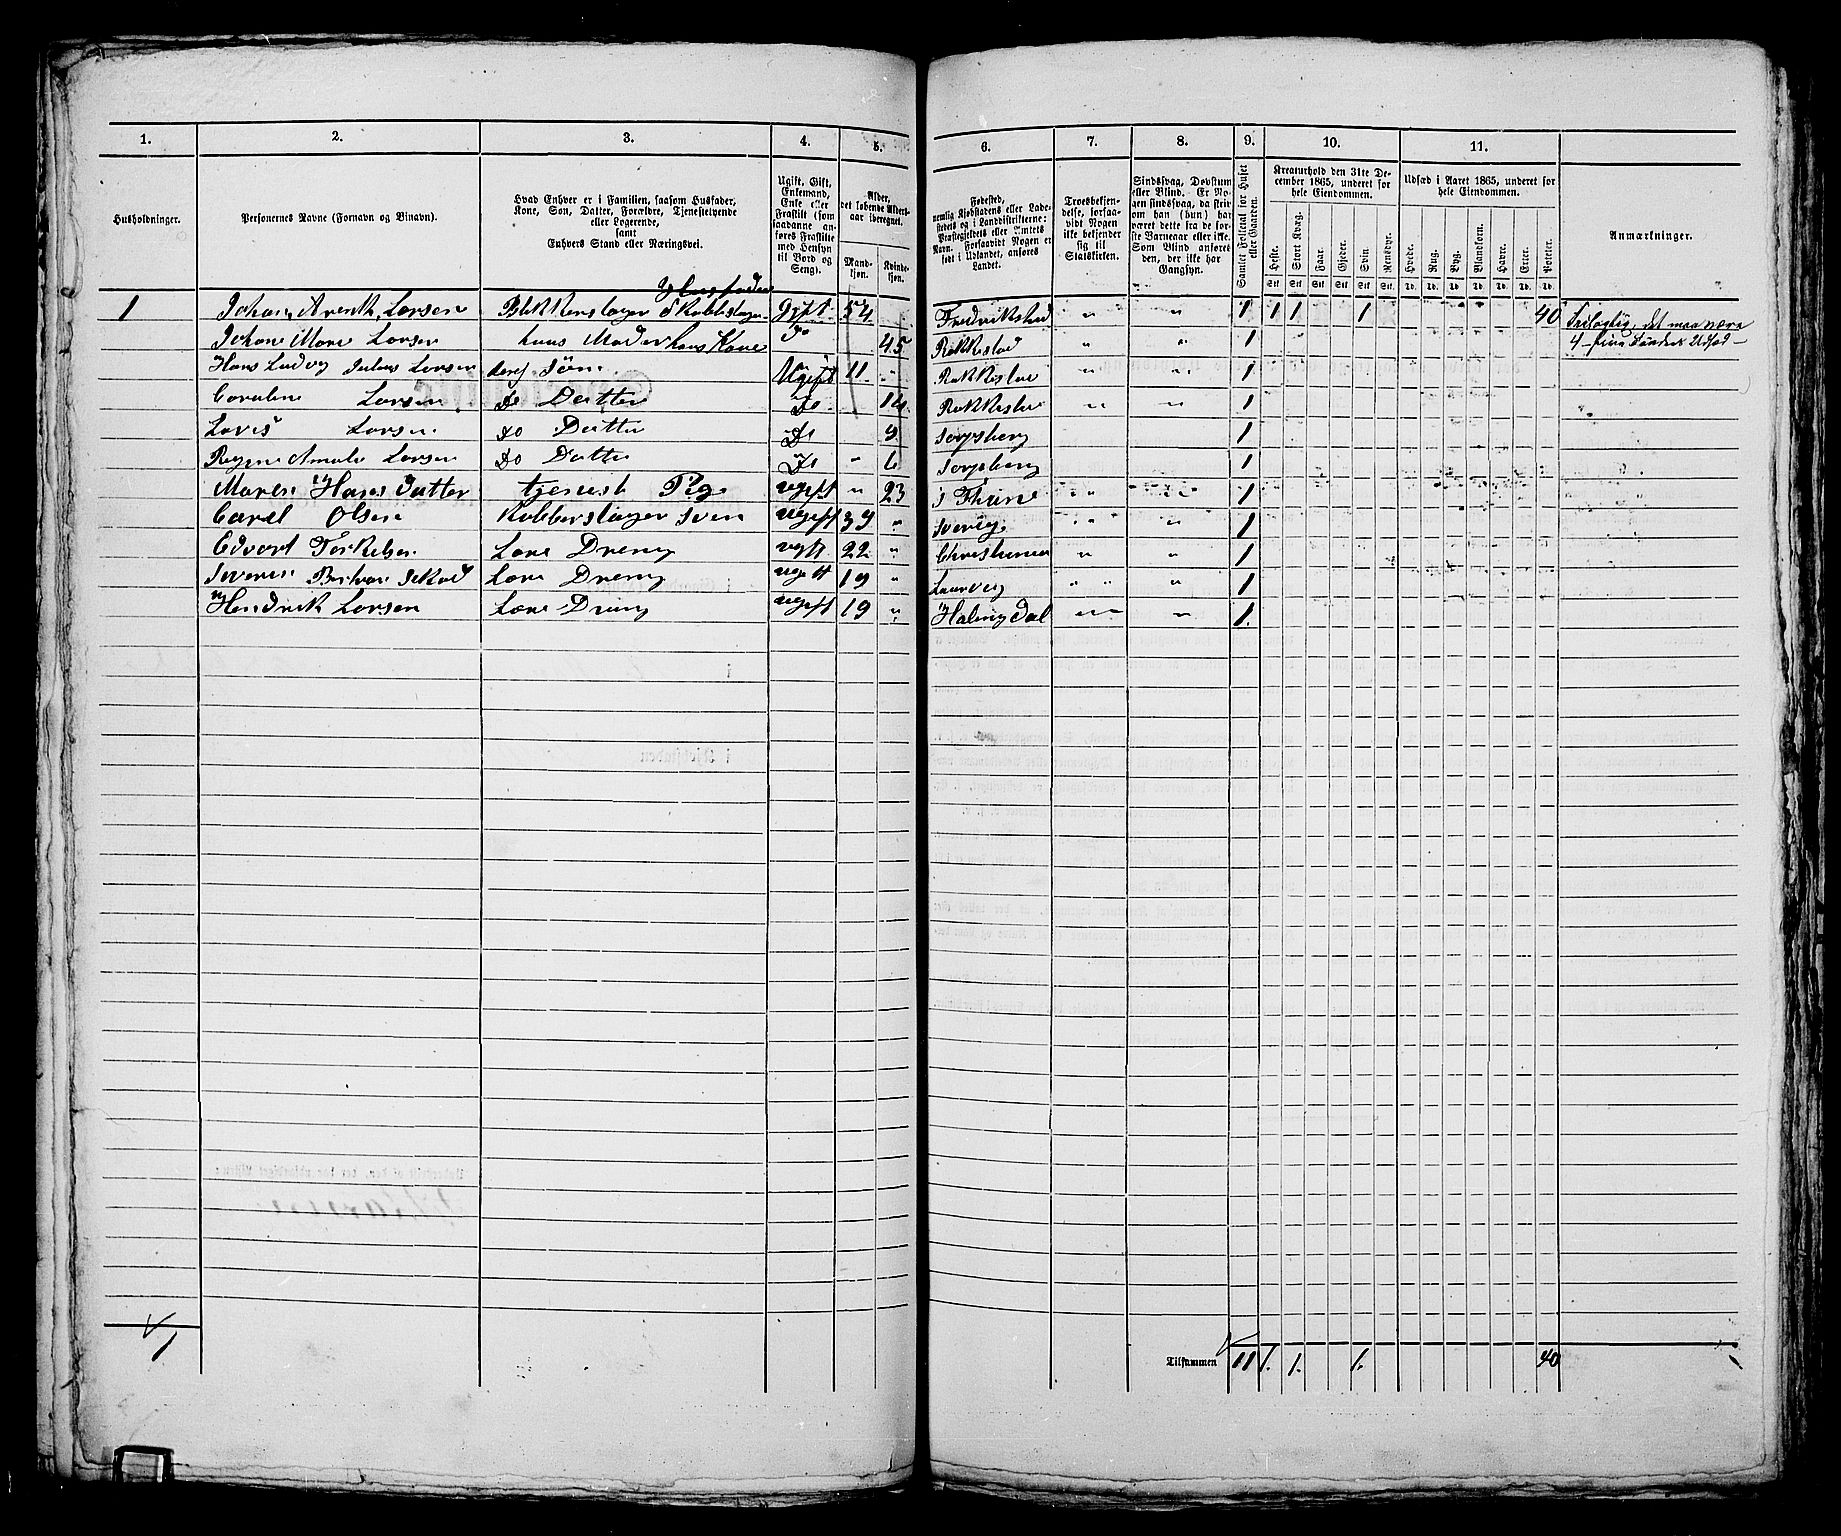 1. 2. 3. 4. 5. 6. 7. 8. 9. 10. 11.
Husholdninger.
Personernes Navne (Fornavn og Binavn).
Hvad Enhver er i Familien, saasom Husfader,
Kone, Søn, Datter, Forældre, Tjenestetyende
eller Logerende,
samt
Enhvers Stand eller Næringsvei.
Ugift, Gift,
Enkemand,
Enke eller
Fraskilt (som
saadanne an-
føres Fraskilte
med Hensyn
til Bord og
Seng).
Alder,
det løbende Alders-
aar iberegnet.
Mand-
kjøn.
Kvinde-
kjøn.
Fødested,
nemlig Kjøbstadens eller Lade-
stedets og i Landdistrikterne:
Præstegjeldets eller Amtets
Navn. Forsaavidt Nogen er
født i Udlandet, anføres
Landet.
Troesbekjen-
delse, forsaa-
vidt Nogen
ikke bekjender
sig til
Statskirken.
Sindssvag, Døvstum
eller Blind. Er No-
gen sindssvag, da skriv
om han (hun) har
været dette fra de før-
ste Barneaar eller ikke.
Som Blind anføres
den, der ikke har
Gangsyn.
Samlet Folketal for Huset
eller Gaarden.
Kreaturhold den 31te De-
cember 1865, underet for
hele Eiendommen.
Heste. Stort Kvæg. Faar. Gjeder. Svin. Rensdyr.
Stk. Stk. Stk. Stk. Stk. Stk.
Udsæd i Aaret 1865, underet for
hele Eiendommen.
Hvede. Rug. Byg. Blandkorn. Havre. Erter. Poteter.
Td. Td. Td. Td. Td. Td. Td.
Anmærkninger.
1 Johan Arentk Larsen Blikkenslager & Kobberslager Gift 54 Fredrikstad " " 1 1 1 1 40
det maa være
Johane Mare Larsen huus Moder hans Kone Do 45 Rakkestad " " 1 4
Hans Ludvig Julius Larsen deres Søn Ugift 11 " Rakkestad " " 1
Caroline Larsen Do Datter Do 14 Rakkestad " " 1
Lovis Larsen Do Datter Do 9 Sarpsborg 1
Regine Amale Larsen Do Datter Do " 6 Sarpsborg 1
Maren Hans Datter tjeneste Pige ugift " 23 Thune " " 1
Carel Olsen Kobberslager Sven ugift 39 " Sverig " " 1
Edvart Torkelsen Lære Dreng ugift 22 " Christiania " " 1
Lære Dreng ugift 19 " Laurvig " " 1
Hendrik Larsen Lære Dreng ugift 19 " Halingdal " " 1.
1
Tilsammen 11 1. 1. 1. 40